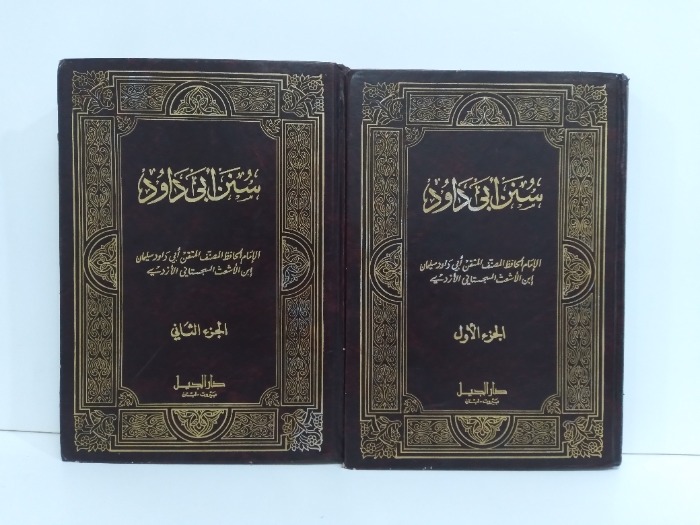 سُنَن أَبي دَاوُد
الإمام الحافظ المصنف المتقن أبي داود سليمان
ابن الأشعث السجستاني الأزدي
الجزء الأول
دار الجيل
بيروت - لبنان
سُنَن أَبي دَاوُد
الإمام الحافظ المصنف المتقن أبي داود سليمان
ابن الأشعث السجستاني الأزدي
الجزء الثاني
دار الجيل
بيروت - لبنان